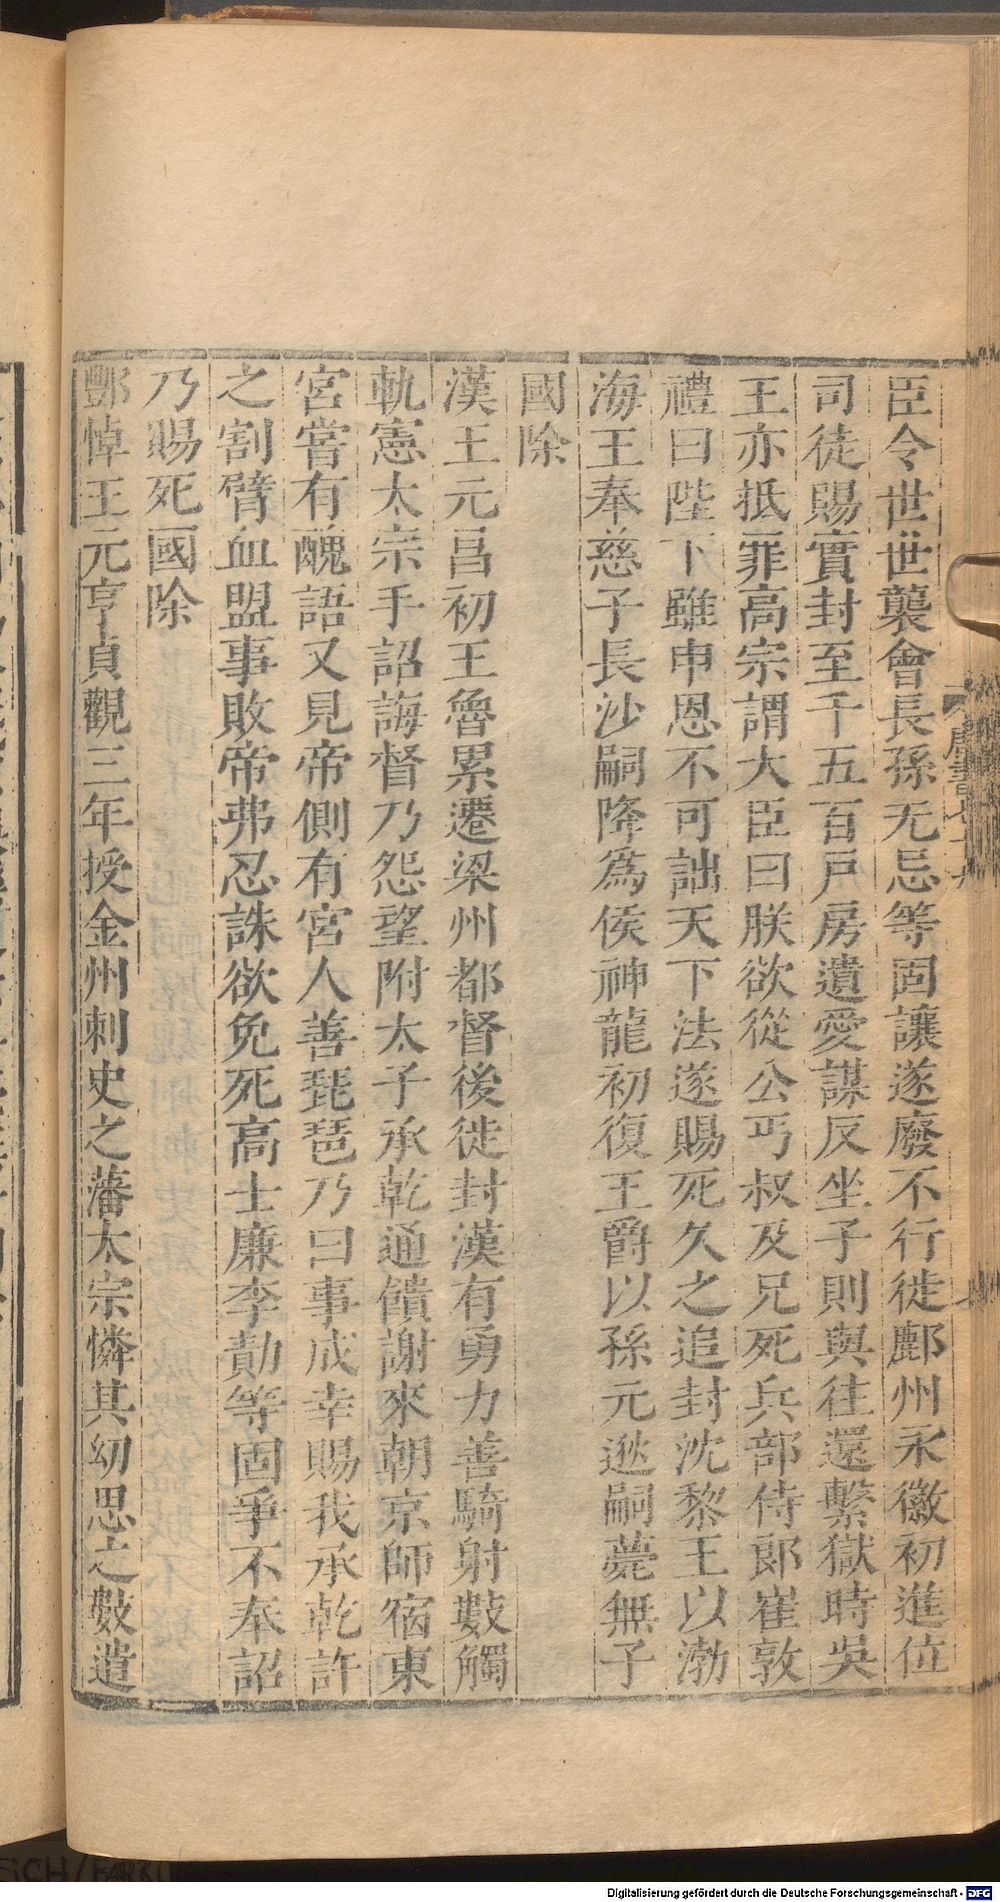 臣令世世襲會長孫无忌等固讓遂廢不行徙鄜州永徽初進位
司徒賜實封至千五百戶房遺愛謀反坐子則與往還繫獄時吳
王亦抵罪高宗謂大臣曰朕欲從公丐叔及兄死兵部侍郞崔敦
禮曰陛下雖申恩不可詘天下法遂賜死久之追封沈黎王以渤
海王奉慈子長沙嗣降爲侯神龍初復王爵以孫元逖嗣薨無子
國除
漢王元昌初王魯累遷梁州都督後徙封漢有勇力善騎射數觸
軌憲太宗手詔誨督乃怨望附太子承乾通饋謝來朝京師宿東
宮嘗有醜語又見帝側有宮人善琵琶乃曰事成幸賜我承乾許
之割臂血盟事敗帝弗忍誅欲免死高士廉李勣等固爭不奉詔
乃賜死國除
酆悼王元亨貞觀三年授金州刺史之藩太宗憐其幼思之數遣
唐書七十九
Digitalisierung gefördert durch die Deutsche Forschungsgemeinschaft - DFG